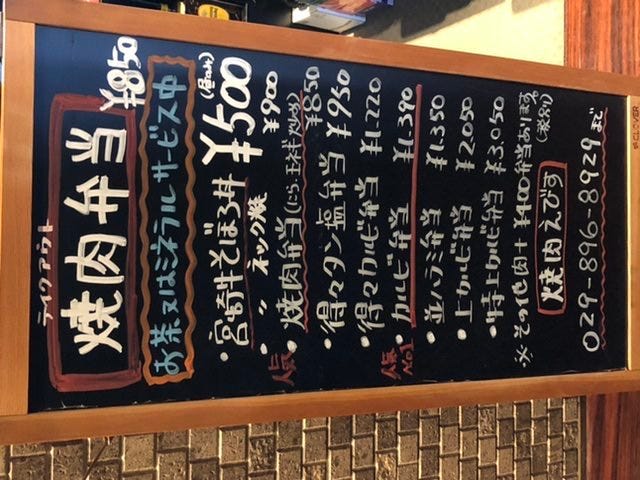 テイクアウト
焼肉弁当 ¥850
お茶又はミネラルサービス中
・宮崎牛そぼろ丼 ¥500
・〃 ネック焼 ¥900
人気 ・焼肉弁当 ¥850
・得々タン塩弁当 ¥950
・得々カルビ弁当 ¥1.220
人気No1 ・カルビ弁当 ¥1.390
・並ハラミ弁当 ¥1.350
・上カルビ弁当 ¥2.050
・特上カルビ弁当 ¥3.050
※その他肉+¥400弁当あります。
(税別)
焼肉えびす
029-896-8929まで
CLOVER